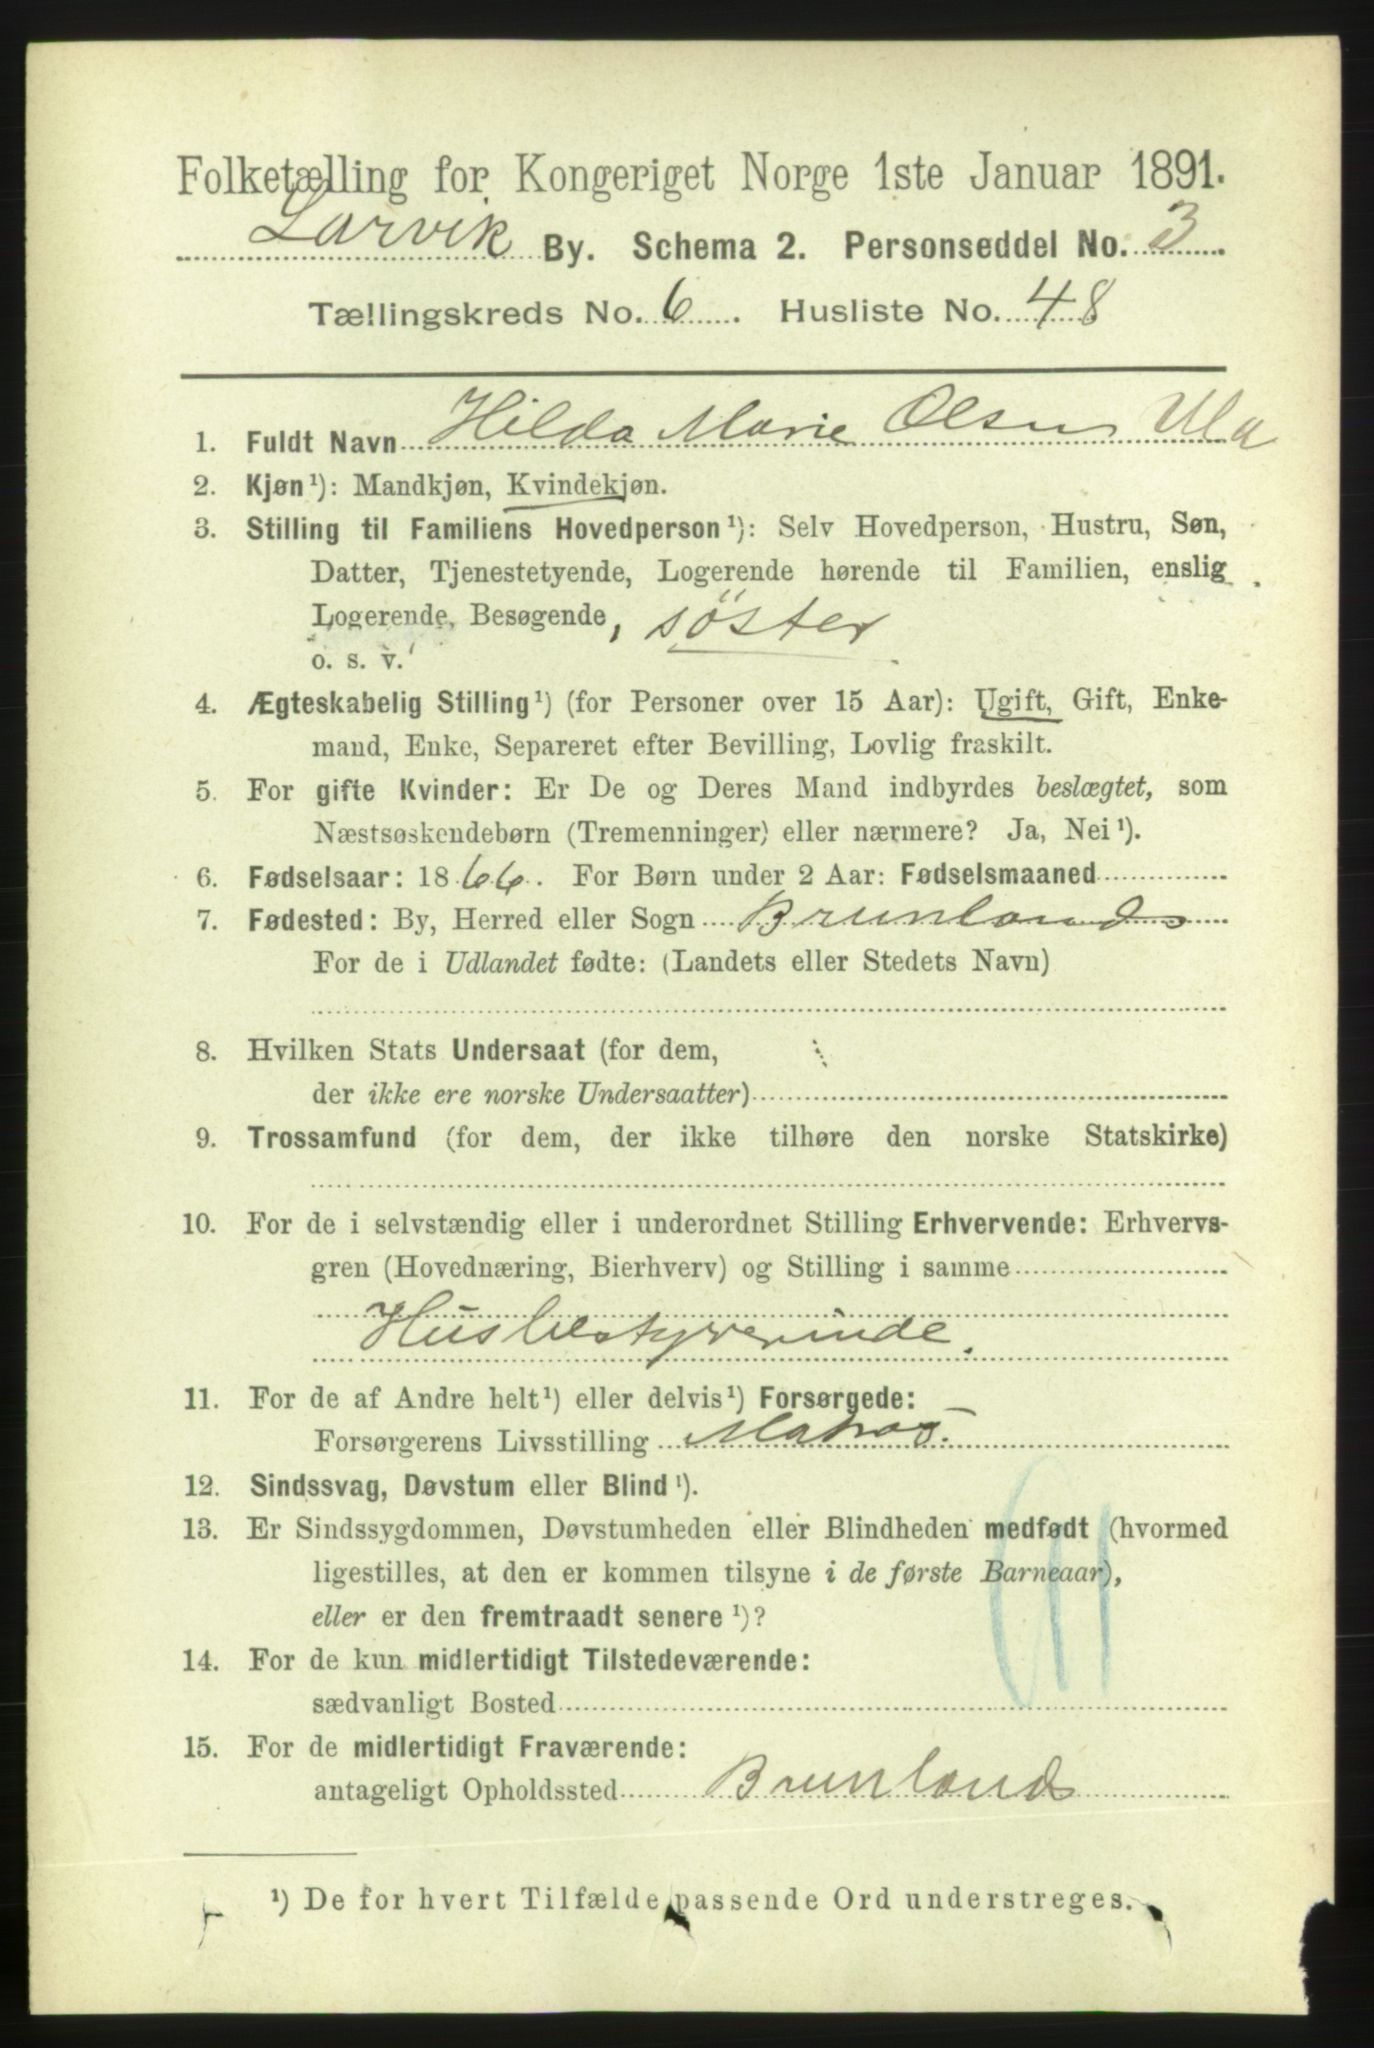 Folketælling for Kongeriget Norge 1ste Januar 1891.
Larvik By. Schema 2. Personseddel No. 3
Tællingskreds No. 6. Husliste No. 48
1. Fuldt Navn Hilda Marie Olsen Ula
2. Kjøn¹): Mandkjøn, Kvindekjøn.
3. Stilling til Familiens Hovedperson¹): Selv Hovedperson, Hustru, Søn,
Datter, Tjenestetyende, Logerende hørende til Familien, enslig
Logerende, Besøgende, søster
o. s. v.
4. Ægteskabelig Stilling¹) (for Personer over 15 Aar): Ugift, Gift, Enke-
mand, Enke, Separeret efter Bevilling, Lovlig fraskilt.
5. For gifte Kvinder: Er De og Deres Mand indbyrdes beslægtet, som
Næstsøskendebørn (Tremenninger) eller nærmere? Ja, Nei¹).
6. Fødselsaar: 1866. For Børn under 2 Aar: Fødselsmaaned
7. Fødested: By, Herred eller Sogn Brunlands
For de i Udlandet fødte: (Landets eller Stedets Navn)
8. Hvilken Stats Undersaat (for dem,
der ikke ere norske Undersaatter)
9. Trossamfund (for dem, der ikke tilhøre den norske Statskirke)
10. For de i selvstændig eller i underordnet Stilling Erhvervende: Erhvervs-
gren (Hovednæring, Bierhverv) og Stilling i samme
Husbestyrerinde.
11. For de af Andre helt¹) eller delvis¹) Forsørgede:
Forsørgerens Livsstilling Matros.
12. Sindssvag, Døvstum eller Blind¹).
13. Er Sindssygdommen, Døvstumheden eller Blindheden medfødt (hvormed
ligestilles, at den er kommen tilsyne i de første Barneaar),
eller er den fremtraadt senere¹)?
14. For de kun midlertidigt Tilstedeværende:
sædvanligt Bosted
15. For de midlertidigt Fraværende:
antageligt Opholdssted Brunlands
¹) De for hvert Tilfælde passende Ord understreges.